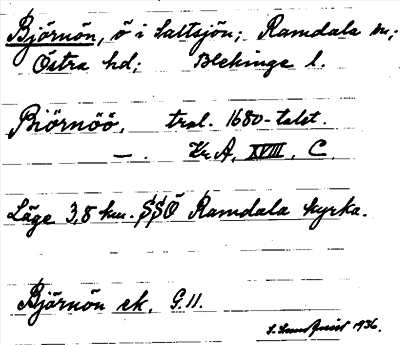 Björnön, ö i Saltsjön; Ramdala sn;
Östra hd; Blekinge l.
Biörnöö, trol. 1680-talet.
— . Kr. A, XVIII, C.
Läge 3,8 km. SSÖ Ramdala kyrka.
Björnön ek. G.11.
1936.